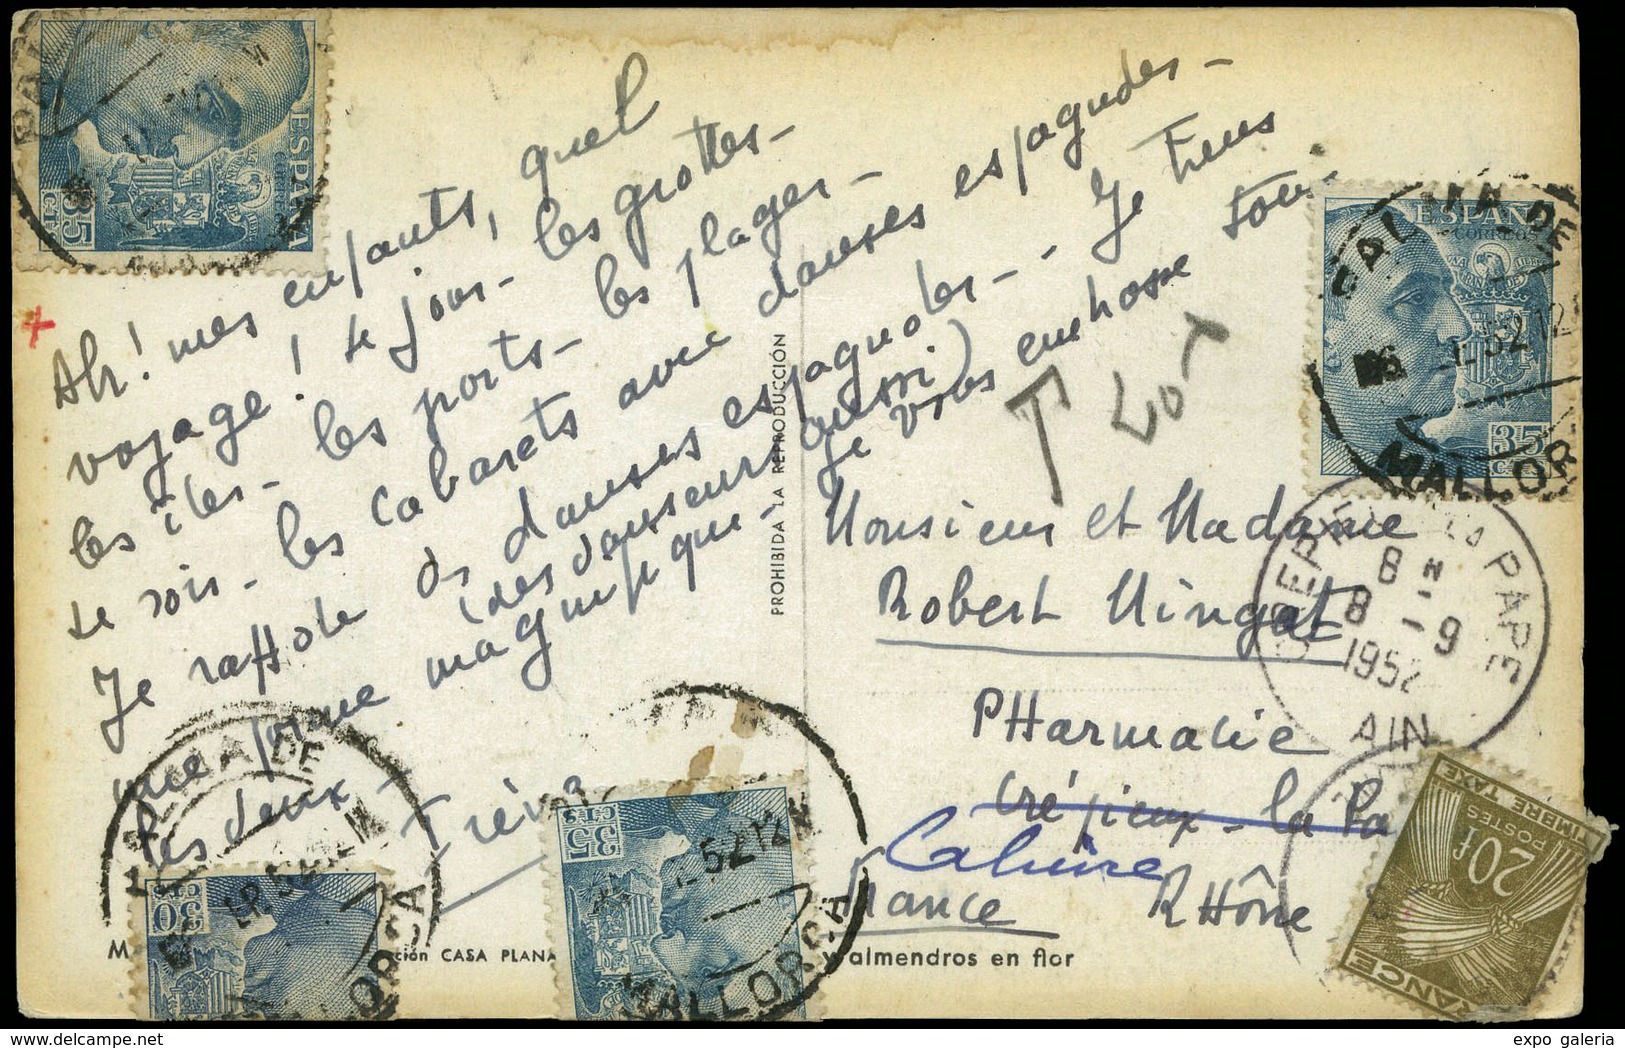 Ah! mes enfants, quel
voyage! le jour - les grottes -
les îles - les ports - les plages -
le soir - les cabarets avec danses espagnoles -
Je raffole des danses espagnoles - - Je trouve
(des danseurs aussi)
que magnifique - Je vous embrasse tous
les deux -
PROHIBIDA LA REPRODUCCIÓN
T 20f
Monsieur et Madame
Robert Mingat
PHarmacie
Crépieux - la Pa
Caluire
RHône
France
CASA PLANA
y almendros en flor
ESPAÑA
CORREOS
35 CTS
ESPAÑA
35 CTS
35 CTS
30 CTS
PALMA DE MALLORCA
PALMA DE MALLORCA
LA PAPE
8 H
8 - 9
1952
AIN
FRANCE
20f
POSTES
TIMBRE TAXE
expo galeria